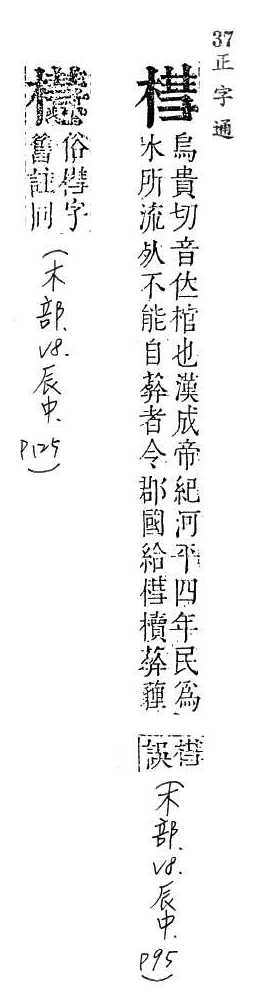 37 正字通
烏貴切音棺也漢成帝紀河平四年民為
水所流不能自葬者令郡國給櫝葬薶
誤
(木部. V8. 辰中. P95)
俗字
舊註同
(木部. V8. 辰中. P125)